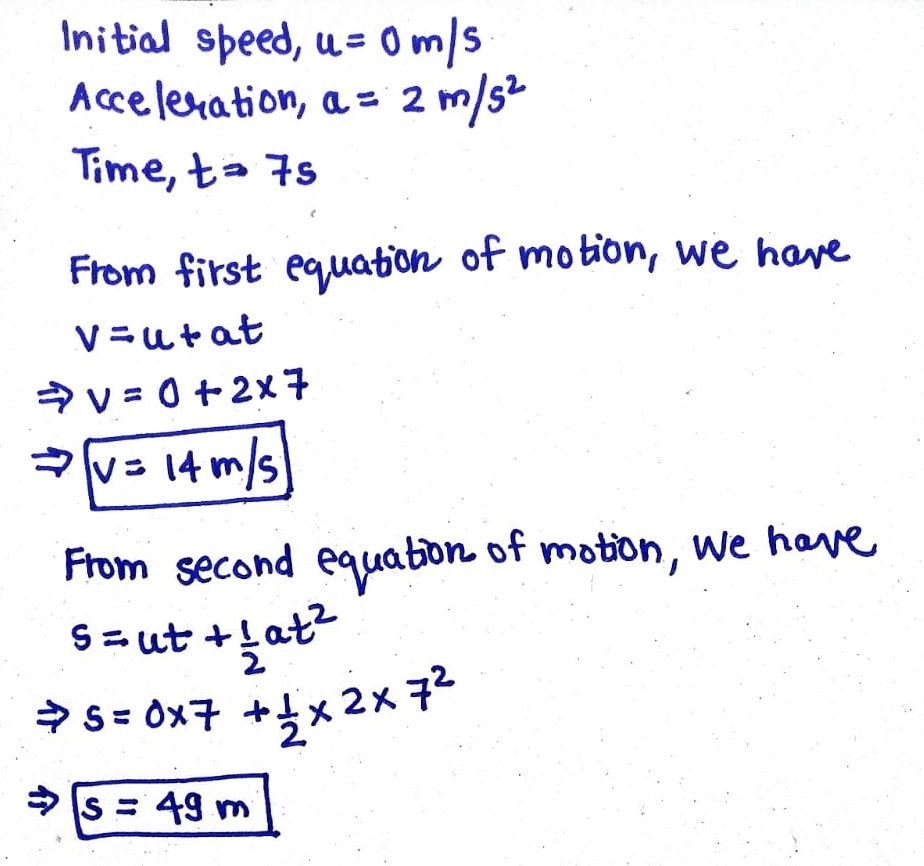 Initial speed, u = 0 m/s
Acceleration, a = 2 m/s²
Time, t = 7s
From first equation of motion, we have
v = u + at
⇒ v = 0 + 2×7
⇒ v = 14 m/s
From second equation of motion, we have
s = ut + 1/2 at²
⇒ s = 0×7 + 1/2 × 2 × 7²
⇒ s = 49 m